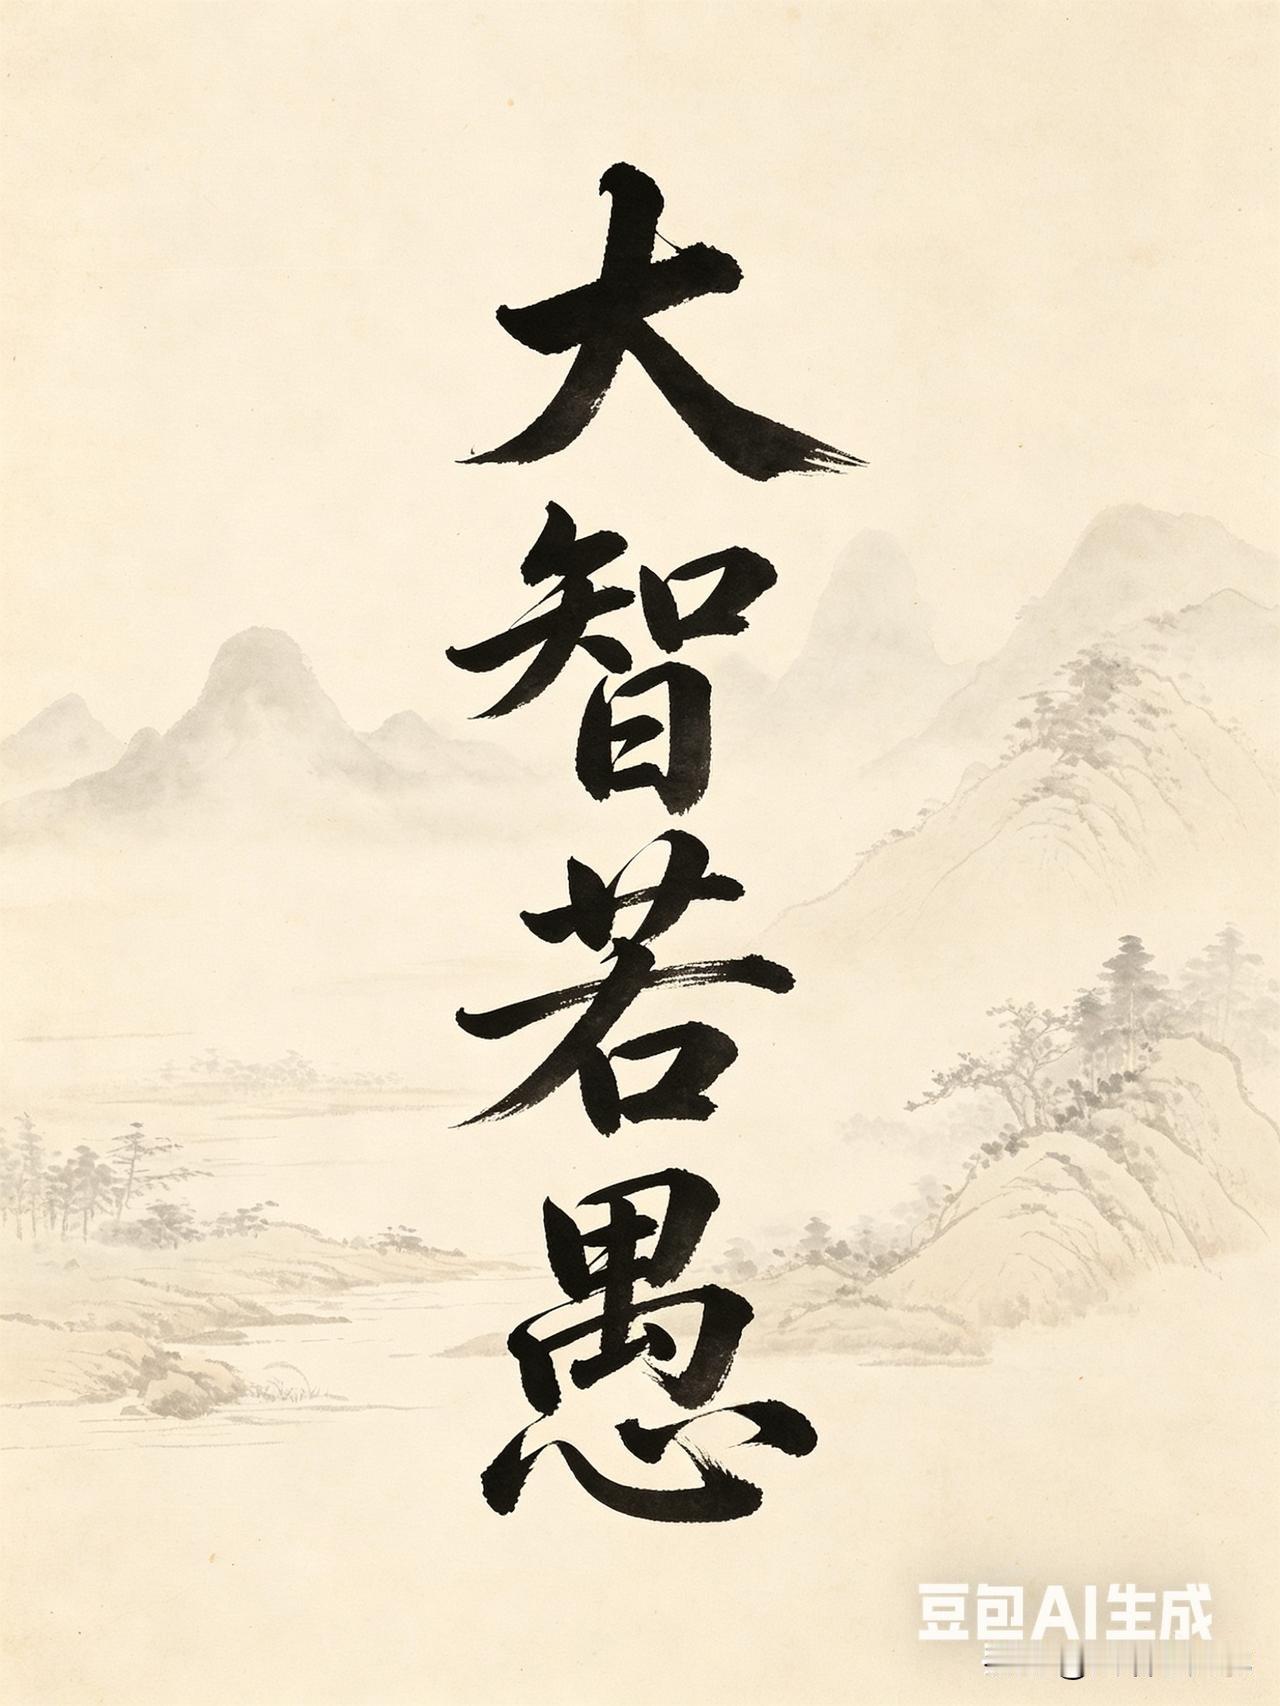 大智若愚
豆包AI生成